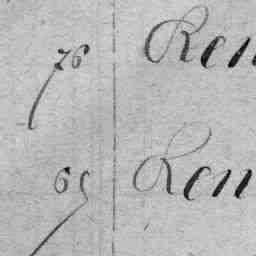 76 Ren
69 Ren